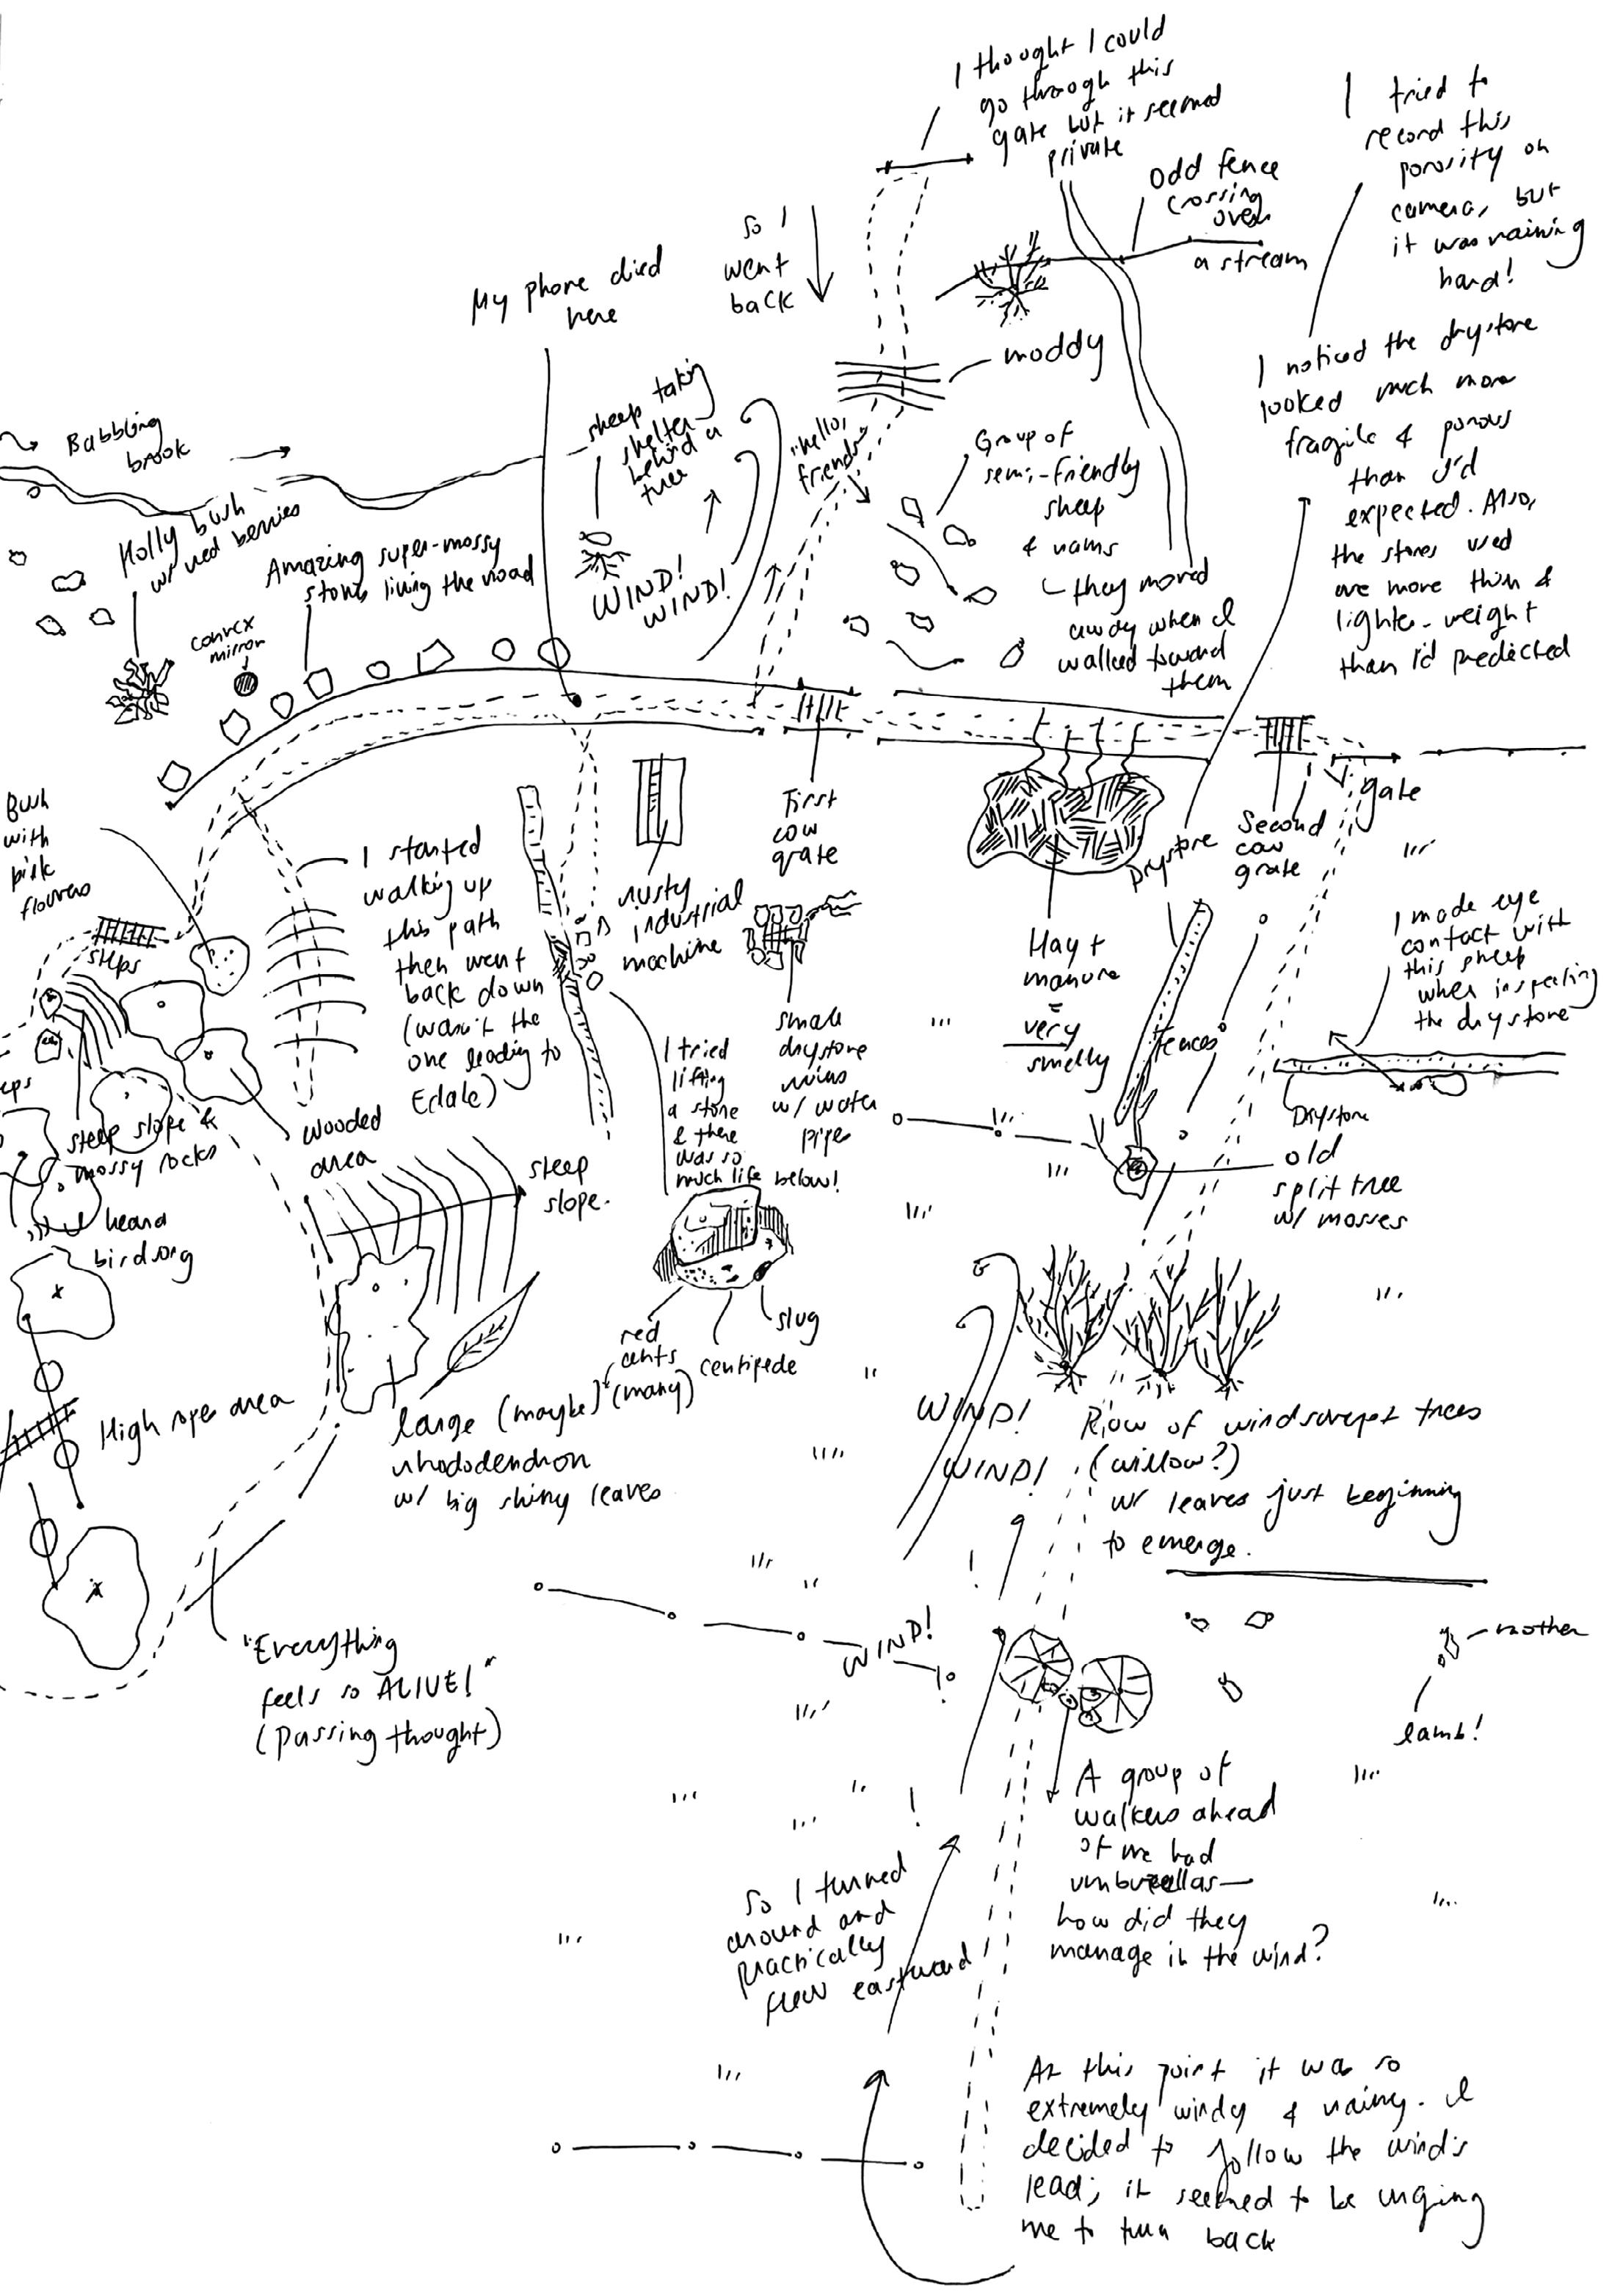 I thought I could
go through this
gate but it seemed
private
I tried to
record this
porosity on
camera, but
it was raining
hard!
Odd fence
crossing
over
a stream
so I
went
back
My phone died
here
muddy
I noticed the drystone
looked much more
fragile & porous
than I'd
expected. Also,
the stones used
are more thin &
lighter-weight
than I'd predicted
Babbling
brook
sheep taking
shelter
behind a
tree
"hello,
friends"
Group of
semi-friendly
sheep
& rams
they moved
away when I
walked toward
them
Holly bush
w/ red berries
Amazing super-mossy
stones lining the road
WIND!
WIND!
convex
mirror
Bush
with
pink
flowers
I started
walking up
this path
then went
back down
(wasn't the
one leading to
Edale)
rusty
industrial
machine
First
cow
grate
Drystone
Second
cow
grate
gate
steps
Hay +
manure
=
very
smelly
I made eye
contact with
this sheep
when inspecting
the drystone
fences
small
drystone
ruins
w/ water
pipe
I tried
lifting
a stone
& there
was so
much life below!
Drystone
old
split tree
w/ mosses
eps
steep slope &
mossy rocks
wooded
area
steep
slope.
heard
birdsong
red
ants
(many)
centipede
slug
High rope area
large (maybe)
rhododendron
w/ big shiny leaves
WIND!
WIND!
Row of windswept trees
(willow?)
w/ leaves just beginning
to emerge.
WIND!
mother
lamb!
"Everything
feels so ALIVE!"
(passing thought)
A group of
walkers ahead
of me had
umbrellas—
how did they
manage in the wind?
So I turned
around and
practically
flew eastward
At this point it was so
extremely windy & rainy. I
decided to follow the wind's
lead; it seemed to be urging
me to turn back